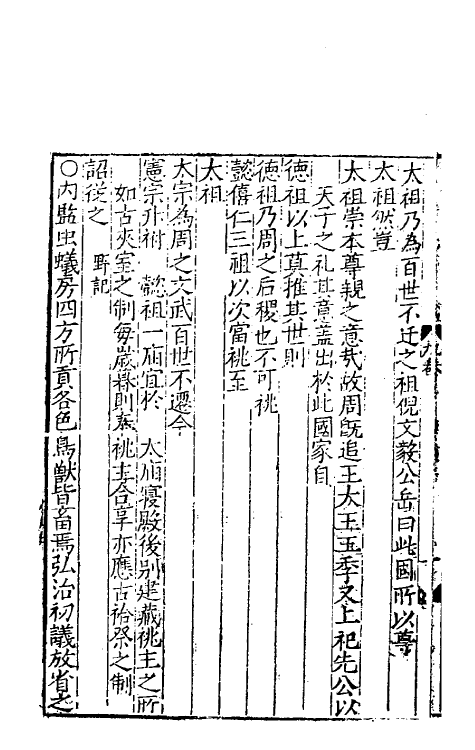 太祖乃為百世不迁之祖倪文毅公岳曰此固所以尊
太祖然豈
太祖崇本尊親之意哉故周既追王大王王季又上祀先公以
天子之礼其意蓋出於此國家自
德祖以上莫推其世則
德祖乃周之后稷也不可祧
懿僖仁三祖以次當祧至
太祖
太宗為周之文武百世不遷今
憲宗升祔 懿祖一廟宜於 太廟寝殿後别建藏祧主之所
如古夾室之制每歲祿則奉祧主合享亦應古祫祭之制
詔從之 野記
〇内監虫蟻房四方所貢各色鳥獸皆畜焉弘治初議放省之